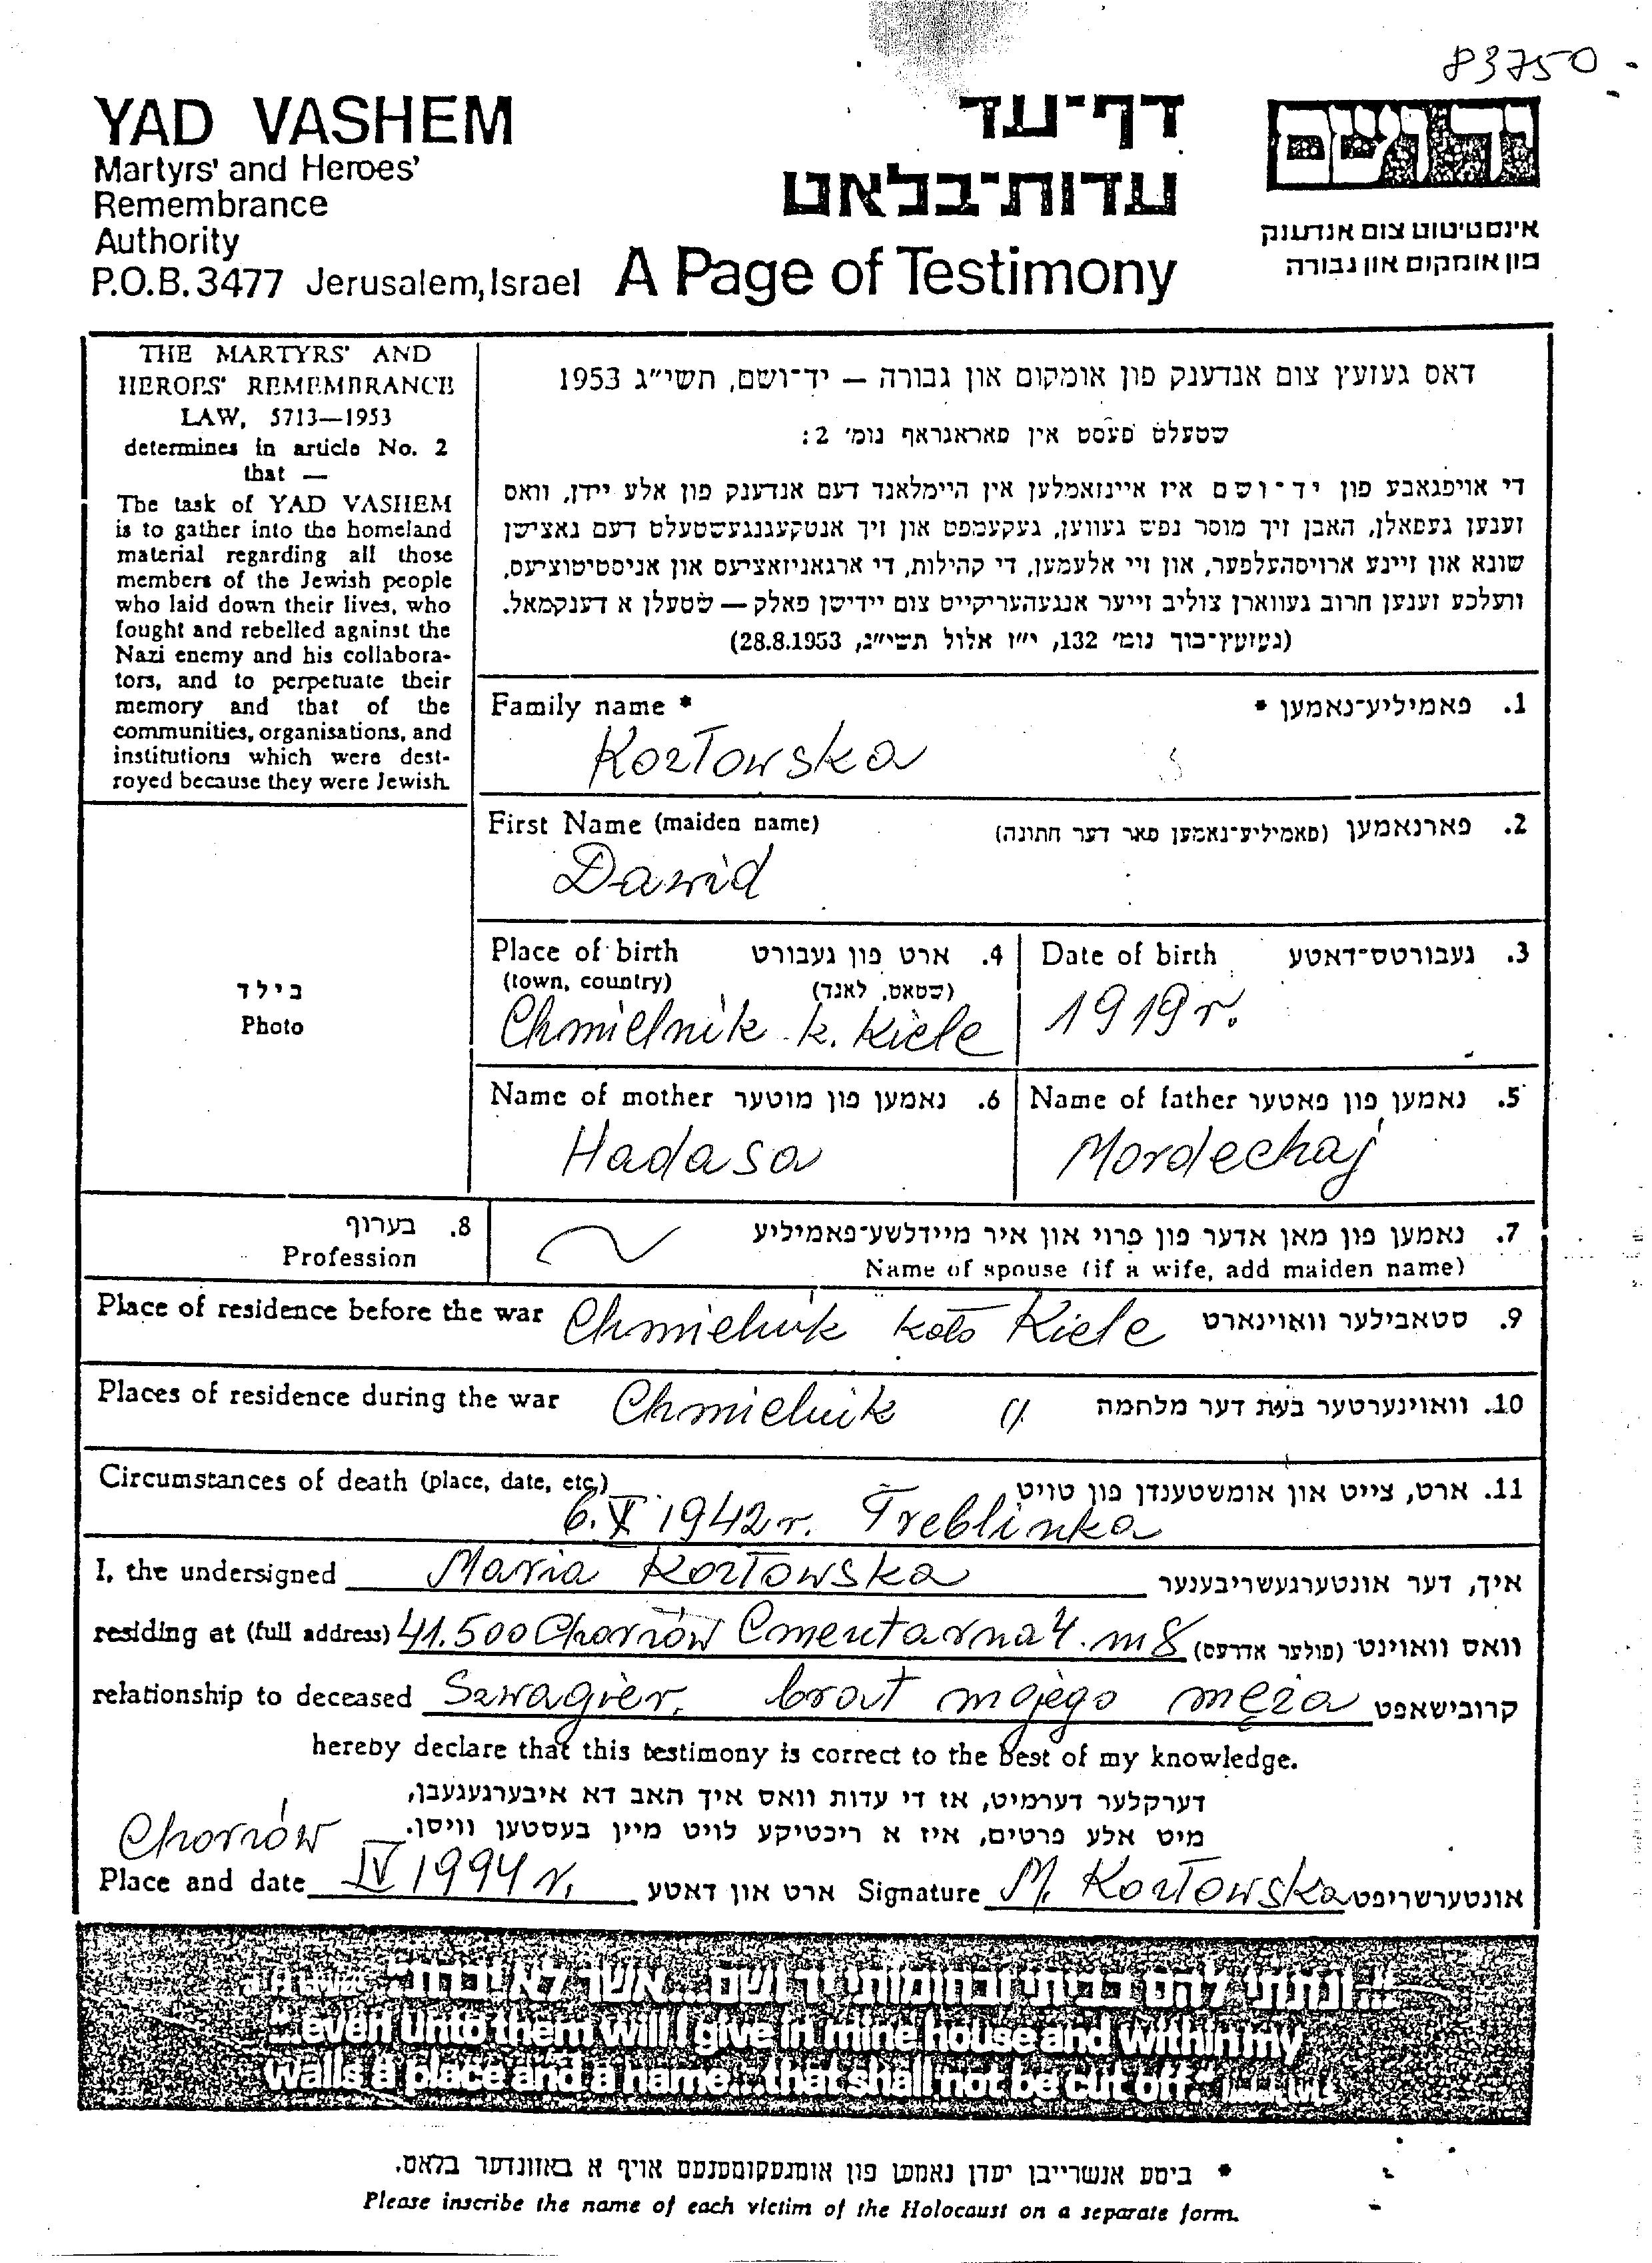 83750
YAD VASHEM
Martyrs' and Heroes'
Remembrance
Authority
P.O.B. 3477 Jerusalem, Israel
דף־עד
עדות־בלאט
A Page of Testimony
יד ושם
אינסטיטוט צום אנדענק
פון אומקום און גבורה
THE MARTYRS' AND
HEROES' REMEMBRANCE
LAW, 5713—1953
determines in article No. 2
that —
The task of YAD VASHEM
is to gather into the homeland
material regarding all those
members of the Jewish people
who laid down their lives, who
fought and rebelled against the
Nazi enemy and his collabora-
tors, and to perpetuate their
memory and that of the
communities, organisations, and
institutions which were dest-
royed because they were Jewish.
דאס געזעץ צום אנדענק פון אומקום און גבורה — יד־ושם, תשי״ג 1953
שטעלט פעסט אין פאראגראף נומ׳ 2:
די אויפגאבע פון יד־ושם איז איינזאמלען אין היימלאנד דעם אנדענק פון אלע יידן, וואס
זענען געפאלן, האבן זיך מוסר נפש געווען, געקעמפט און זיך אנטקעגנגעשטעלט דעם נאצישן
שונא און זיינע ארויסהעלפער, און זיי אלעמען, די קהילות, די ארגאניזאציעס און אניסטיטוציעס,
וועלכע זענען חרוב געווארן צוליב זייער אנגעהעריקייט צום יידישן פאלק — שטעלן א דענקמאל.
(געזעץ־בוך נומ׳ 132, י״ז אלול תשי״ג, 28.8.1953)
Family name * פאמיליע־נאמען * .1
Kozłowska
First Name (maiden name) פארנאמען (פאמיליע־נאמען פאר דער חתונה) .2
Dawid
Place of birth ארט פון געבורט .4
(town, country) (שטאט, לאנד)
Chmielnik k. Kiele
Date of birth געבורטס־דאטע .3
1919 r.
Name of mother נאמען פון מוטער .6
Hadasa
Name of father נאמען פון פאטער .5
Mordechaj
בילד
Photo
בערוף .8
Profession
נאמען פון מאן אדער פון פרוי און איר מיידלשע־פאמיליע .7
Name of spouse (if a wife, add maiden name)
Place of residence before the war Chmielnik koło Kiele סטאבילער וואוינארט .9
Places of residence during the war Chmielnik " וואוינערטער בעת דער מלחמה .10
Circumstances of death (place, date, etc.) ארט, צייט און אומשטענדן פון טויט .11
6. X 1942 r. Treblinka
I, the undersigned Maria Kozłowska איך, דער אונטערגעשריבענער
residing at (full address) 41.500 Chorzów Cmentarna 4. m 8 וואס וואוינט (פולער אדרעס)
relationship to deceased Szwagier, brat mojego męża קרובישאפט
hereby declare that this testimony is correct to the best of my knowledge.
דערקלער דערמיט, אז די עדות וואס איך האב דא איבערגעגעבן,
מיט אלע פרטים, איז א ריכטיקע לויט מיין בעסטען וויסן.
Chorzów
Place and date IV 1994 r. ארט און דאטע Signature M. Kozłowska אונטערשריפט
"...ונתתי להם בביתי ובחומותי יד ושם...אשר לא יכרת"
"...even unto them will I give in mine house and within my
walls a place and a name...that shall not be cut off"
* ביטע אנשרייבן יעדן נאמען פון אומגעקומענעם אויף א באזונדער בלאט.
Please inscribe the name of each victim of the Holocaust on a separate form.